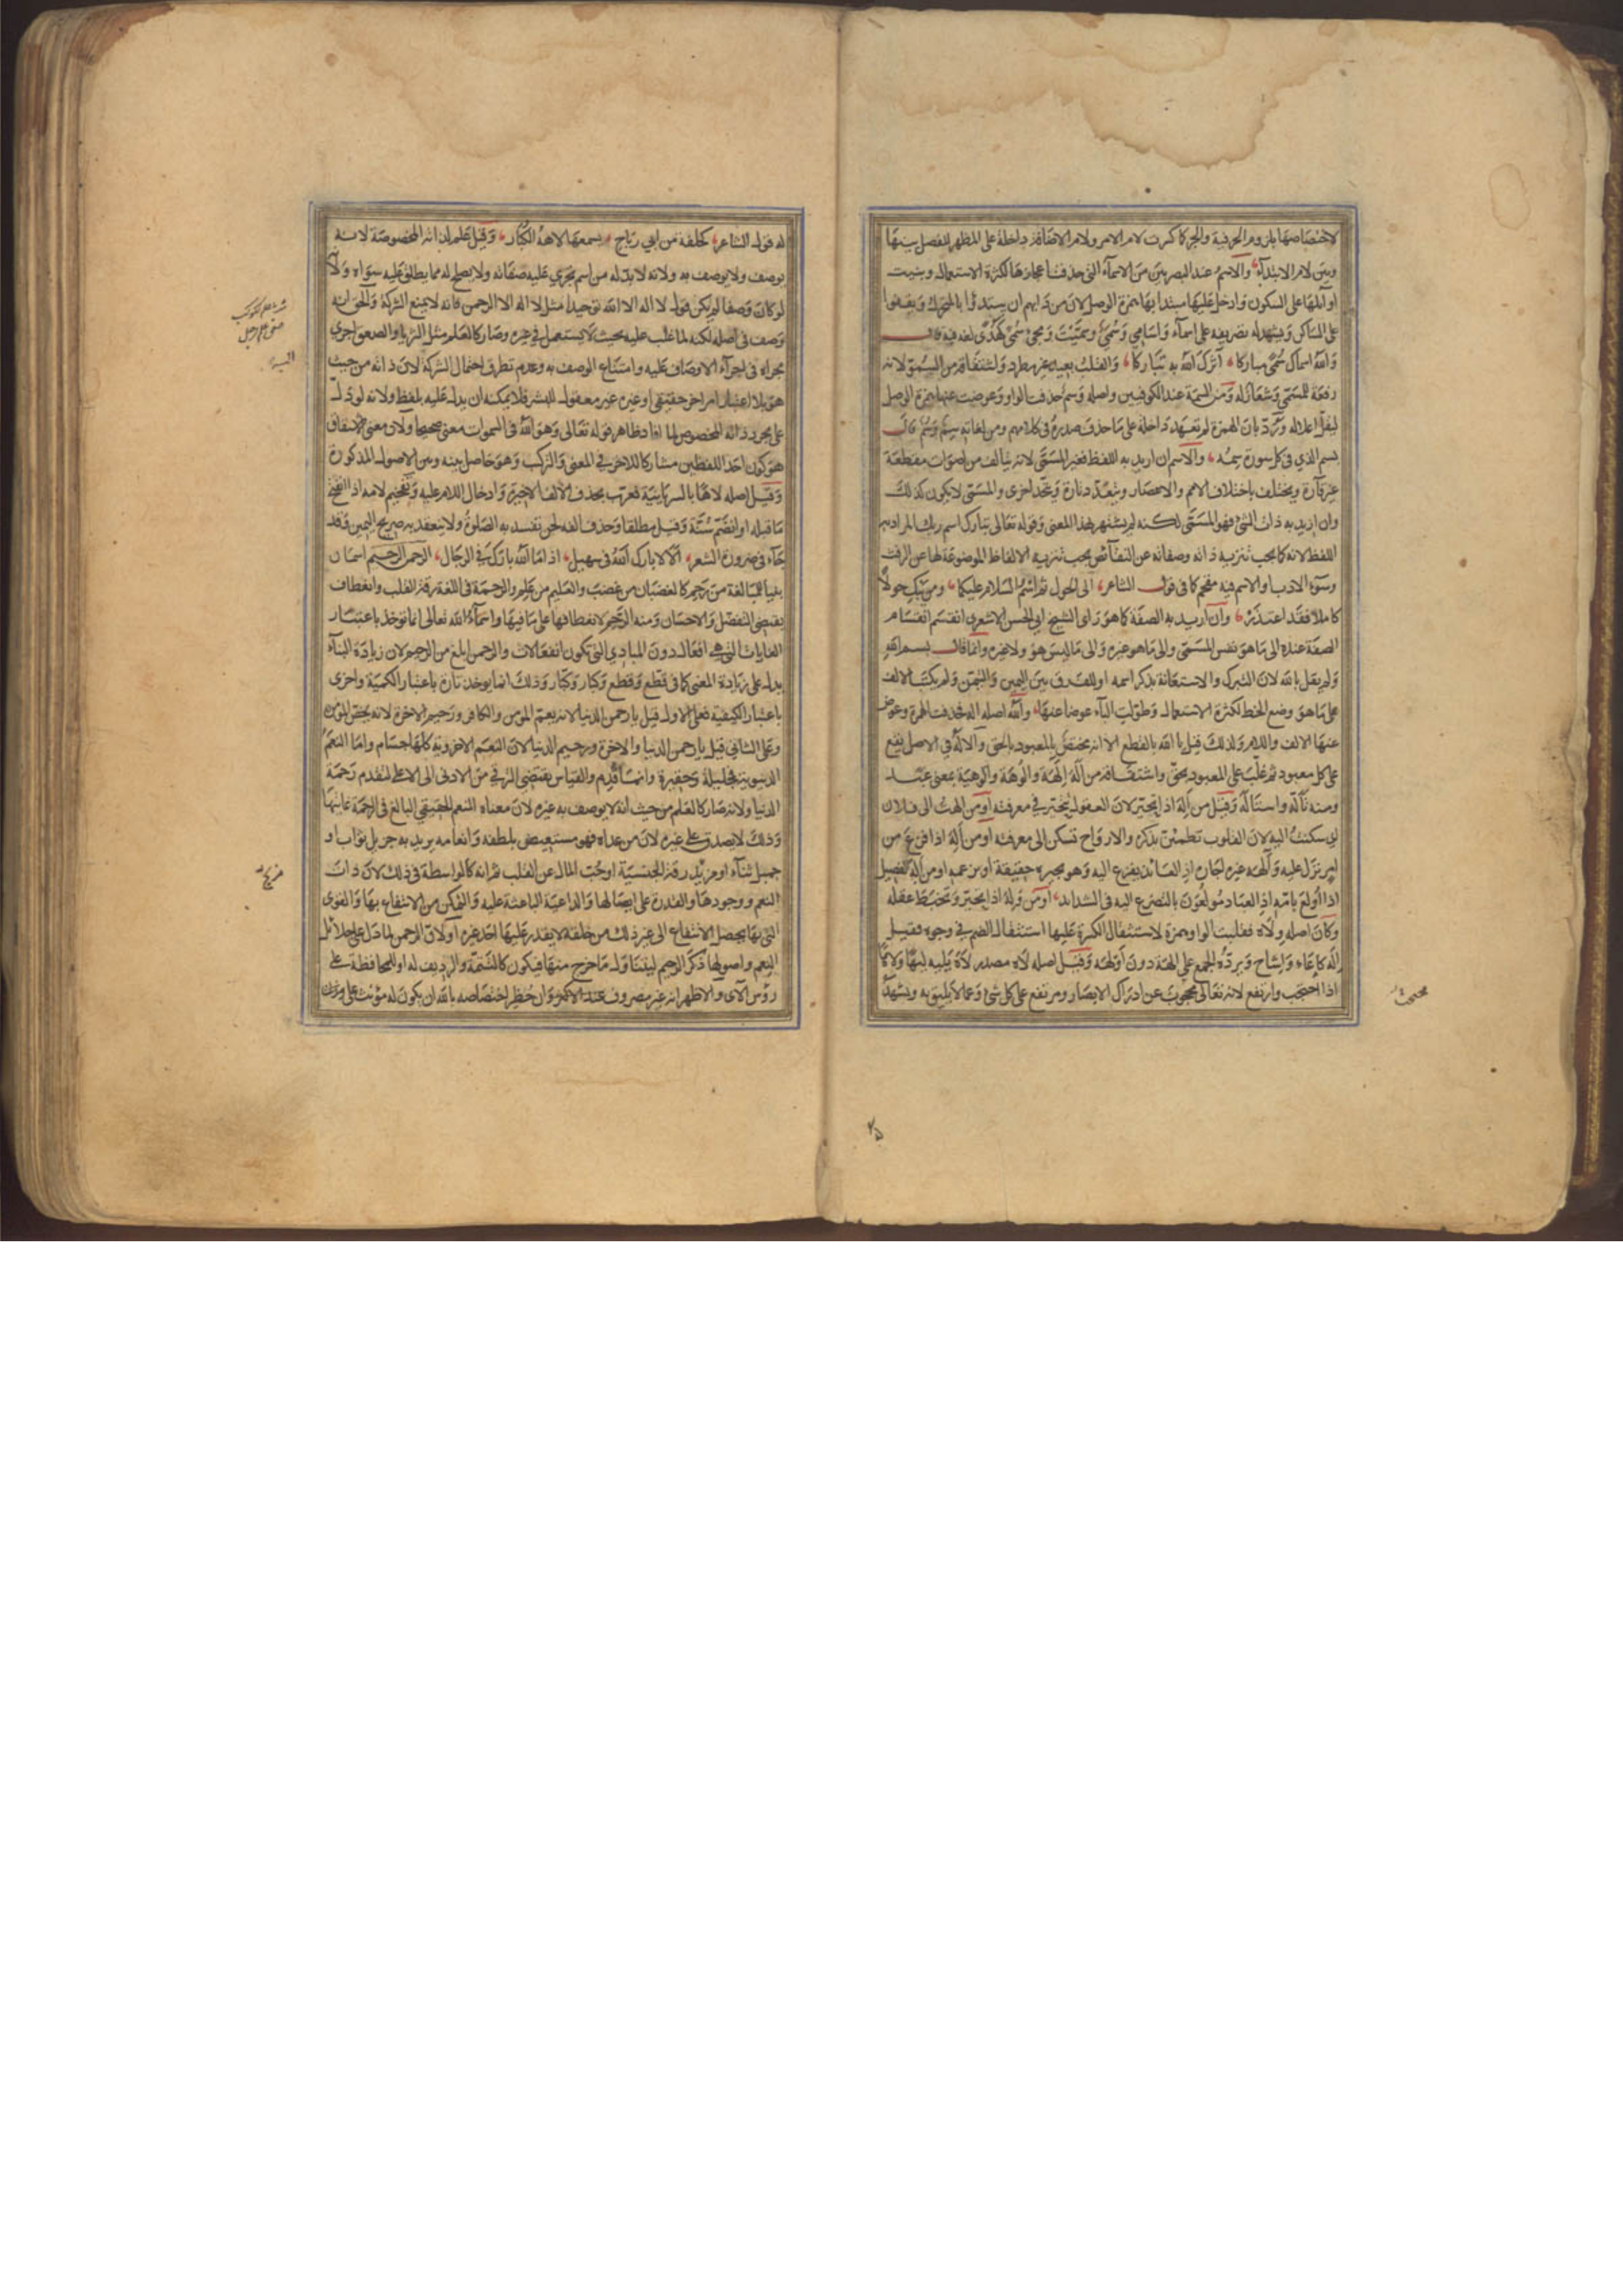 لاختصاصها بلزوم الحرفية والجر كما كسرت لام الامر ولام الاضافة داخلة على المظهر للفصل بينهما
وبين لام الابتداء والاسم عند البصريين من الاسماء التي حذفت اعجازها لكثرة الاستعمال وبنيت
اوائلها على السكون وادخل عليها مبتدأ بها همزة الوصل لان من دابهم ان يبتدؤا بالمتحرك ويقفوا
على الساكن ويشهد له تصريفه على اسماء واسامي وسمي وسميت ومجئ سمى كهدى لغة فيه قال
والله اسماك سمى مباركا اثرك الله به تباركا والقلب بعيد غير مطرد واشتقاقه من السمو لانه
رفعة للمسمى وشعار له ومن السمة عند الكوفيين واصله وسم حذفت الواو وعوضت عنها همزة الوصل
ليقل اعلاله ورد بان الهمزة لم تعهد داخلة على ما حذف صدره في كلامهم ومن لغاته سم وسم قال
بسم الذي في كل سورة سمه والاسم ان اريد به اللفظ فغير المسمى لانه يتالف من اصوات مقطعة
غير قارة ويختلف باختلاف الامم والاعصار ويتعدد تارة ويتحد اخرى والمسمى لا يكون كذلك
وان اريد به ذات الشئ فهو المسمى لكنه لم يشتهر بهذا المعنى وقوله تعالى تبارك اسم ربك المراد به
اللفظ لانه كما يجب تنزيه ذاته وصفاته عن النقائص يجب تنزيه الالفاظ الموضوعة لها عن الرفث
وسوء الادب او الاسم فيه مقحم كما في قول الشاعر الى الحول ثم اسم السلام عليكما ومن يبك حولا
كاملا فقد اعتذر وان اريد به الصفة كما هو راى الشيخ ابي الحسن الاشعري انقسم انقسام
الصفة عنده الى ما هو نفس المسمى والى ما هو غيره والى ما ليس هو ولا غيره وانما قال بسم الله
ولم يقل بالله لان التبرك والاستعانة بذكر اسمه او للفرق بين اليمين والتيمن ولم يكتب الالف
على ما هو وضع الخط لكثرة الاستعمال وطولت الباء عوضا عنها والله اصله اله فحذفت الهمزة وعوض
عنها الالف واللام ولذلك قيل يا الله بالقطع الا انه مختص بالمعبود بالحق والاله في الاصل يقع
على كل معبود ثم غلب على المعبود بحق واشتقاقه من اله الهة والوهة والوهية بمعنى عبد
ومنه تاله واستاله وقيل من اله اذا تحير لان العقول تتحير في معرفته او من الهت الى فلان
اي سكنت اليه لان القلوب تطمئن بذكره والارواح تسكن الى معرفته او من اله اذا فزع من
امر نزل عليه وآلهه غيره اجاره اذ العائذ يفزع اليه وهو يجيره حقيقة او بزعمه او من اله الفصيل
اذا اولع بامه اذ العباد مولعون بالتضرع اليه في الشدائد او من وله اذا تحير وتخبط عقله
وكان اصله ولاه فقلبت الواو همزة لاستثقال الكسرة عليها استثقال الضم في وجوه فقيل
اله كاعاء واشاح ويرده الجمع على الهة دون اولهة وقيل اصله لاه مصدر لاه يليه ليها ولاها
اذا احتجب وارتفع لانه تعالى محجوب عن ادراك الابصار ومرتفع على كل شئ وعما لا يليق به ويشهد
محتجب
٢٥
له قول الشاعر كحلفة من ابي رباح يسمعها لاهه الكبار وقيل علم لذاته المخصوصة لانه
يوصف ولا يوصف به ولانه لا بد له من اسم يجري عليه صفاته ولا يصلح له مما يطلق عليه سواه ولانه
لو كان وصفا لم يكن قول لا اله الا الله توحيدا مثل لا اله الا الرحمن فانه لا يمنع الشركة والحق انه
وصف في اصله لكنه لما غلب عليه بحيث لا يستعمل في غيره وصار كالعلم مثل الثريا والصعق اجري
مجراه في اجراء الاوصاف عليه وامتناع الوصف به وعدم تطرق احتمال الشركة لان ذاته من حيث
هو بلا اعتبار امر اخر حقيقي او غيره غير معقول للبشر فلا يمكنه ان يدل عليه بلفظ ولانه لو دل
على مجرد ذاته المخصوص لما افاد ظاهر قوله تعالى وهو الله في السموات معنى صحيحا ولان معنى الاشتقاق
هو كون احد اللفظين مشاركا للاخر في المعنى والتركيب وهو حاصل بينه وبين الاصول المذكورة
وقيل اصله لاها بالسريانية فعرب بحذف الالف الاخيرة وادخال اللام عليه وتفخيم لامه اذا انفتح
ما قبله او انضم سنة وقيل مطلقا وحذف الفه لحن تفسد به الصلوة ولا ينعقد به صريح اليمين وقد
جاء في ضرورة الشعر الا لا بارك الله في سهيل اذا ما الله بارك في الرجال الرحمن الرحيم اسمان
بنيا للمبالغة من رحم كالغضبان من غضب والعليم من علم والرحمة في اللغة رقة القلب وانعطاف
يقتضي التفضل والاحسان ومنه الرحم لانعطافها على ما فيها واسماء الله تعالى انما توخذ باعتبار
الغايات التي هي افعال دون المبادي التي تكون انفعالات والرحمن ابلغ من الرحيم لان زيادة البناء
يدل على زيادة المعنى كما في قطع وقطع وكبار وكبار وذلك انما يوخذ تارة باعتبار الكمية واخرى
باعتبار الكيفية فعلى الاول قيل يا رحمن الدنيا لانه يعم المؤمن والكافر ورحيم الاخرة لانه يختص المؤمن
وعلى الثاني قيل يا رحمن الدنيا والاخرة ورحيم الدنيا لان النعم الاخروية كلها جسام واما النعم
الدنيوية فجليلة وحقيرة وانما قدم والقياس يقتضي الترقي من الادنى الى الاعلى لتقدم رحمة
الدنيا ولانه صار كالعلم من حيث انه لا يوصف به غيره لان معناه المنعم الحقيقي البالغ في الرحمة غايتها
وذلك لا يصدق على غيره لان من عداه فهو مستعيض بلطفه وانعامه يريد به جزيل ثواب او
جميل ثناء او مزيد رقة الجنسية او حب المال عن القلب ثم انه كالواسطة في ذلك لان ذات
النعم ووجودها والقدرة على ايصالها والداعية الباعثة عليه والتمكن من الانتفاع بها والقوى
التي بها يحصل الانتفاع الى غير ذلك من خلقه لا يقدر عليها احد غيره او لان الرحمن لما دل على جلائل
النعم واصولها ذكر الرحيم ليتناول ما خرج منها فيكون كالتتمة والرديف له او للمحافظة على
رؤس الآى والاظهر انه غير مصروف عند الاكثر وان حظر اختصاصه بالله ان يكون له مؤنث على